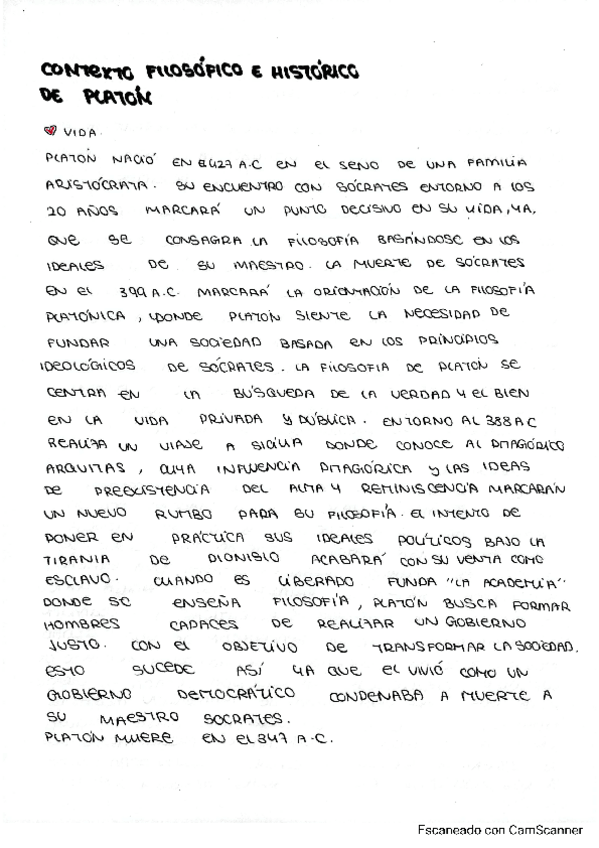 CONTEXTO FILOSÓFICO E HISTÓRICO
DE PLATÓN
VIDA
PLATÓN NACIÓ EN EL 427 A.C EN EL SENO DE UNA FAMILIA
ARISTÓCRATA. SU ENCUENTRO CON SÓCRATES ENTORNO A LOS
20 AÑOS MARCARÁ UN PUNTO DECISIVO EN SU VIDA, YA,
QUE SE CONSAGRA LA FILOSOFÍA BASÁNDOSE EN LOS
IDEALES DE SU MAESTRO. LA MUERTE DE SÓCRATES
EN EL 399 A.C. MARCARÁ LA ORIENTACIÓN DE LA FILOSOFÍA
PLATÓNICA, DONDE PLATÓN SIENTE LA NECESIDAD DE
FUNDAR UNA SOCIEDAD BASADA EN LOS PRINCIPIOS
IDEOLÓGICOS DE SÓCRATES. LA FILOSOFIA DE PLATÓN SE
CENTRA EN LA BÚSQUEDA DE LA VERDAD Y EL BIEN
EN LA VIDA PRIVADA Y PÚBLICA. ENTORNO AL 388 A C
REALIZA UN VIAJE A SICILIA DONDE CONOCE AL PITAGÓRICO
ARQUITAS, CUYA INFLUENCIA PITAGÓRICA Y LAS IDEAS
DE PREEXISTENCIA DEL ALMA Y REMINISCENCIA MARCARÁN
UN NUEVO RUMBO PARA SU FILOSOFÍA. EL INTENTO DE
PONER EN PRÁCTICA SUS IDEALES POLÍTICOS BAJO LA
TIRANIA DE DIONISIO ACABARÁ CON SU VENTA COMO
ESCLAVO. CUANDO ES LIBERADO FUNDA "LA ACADEMIA"
DONDE SE ENSEÑA FILOSOFÍA, PLATÓN BUSCA FORMAR
HOMBRES CAPACES DE REALIZAR UN GOBIERNO
JUSTO. CON EL OBJETIVO DE TRANSFORMAR LA SOCIEDAD.
ESTO SUCEDE ASÍ YA QUE EL VIVIÓ COMO UN
GOBIERNO DEMOCRÁTICO CONDENABA A MUERTE A
SU MAESTRO SOCRATES.
PLATÓN MUERE EN EL 347 A.C.
Escaneado con CamScanner